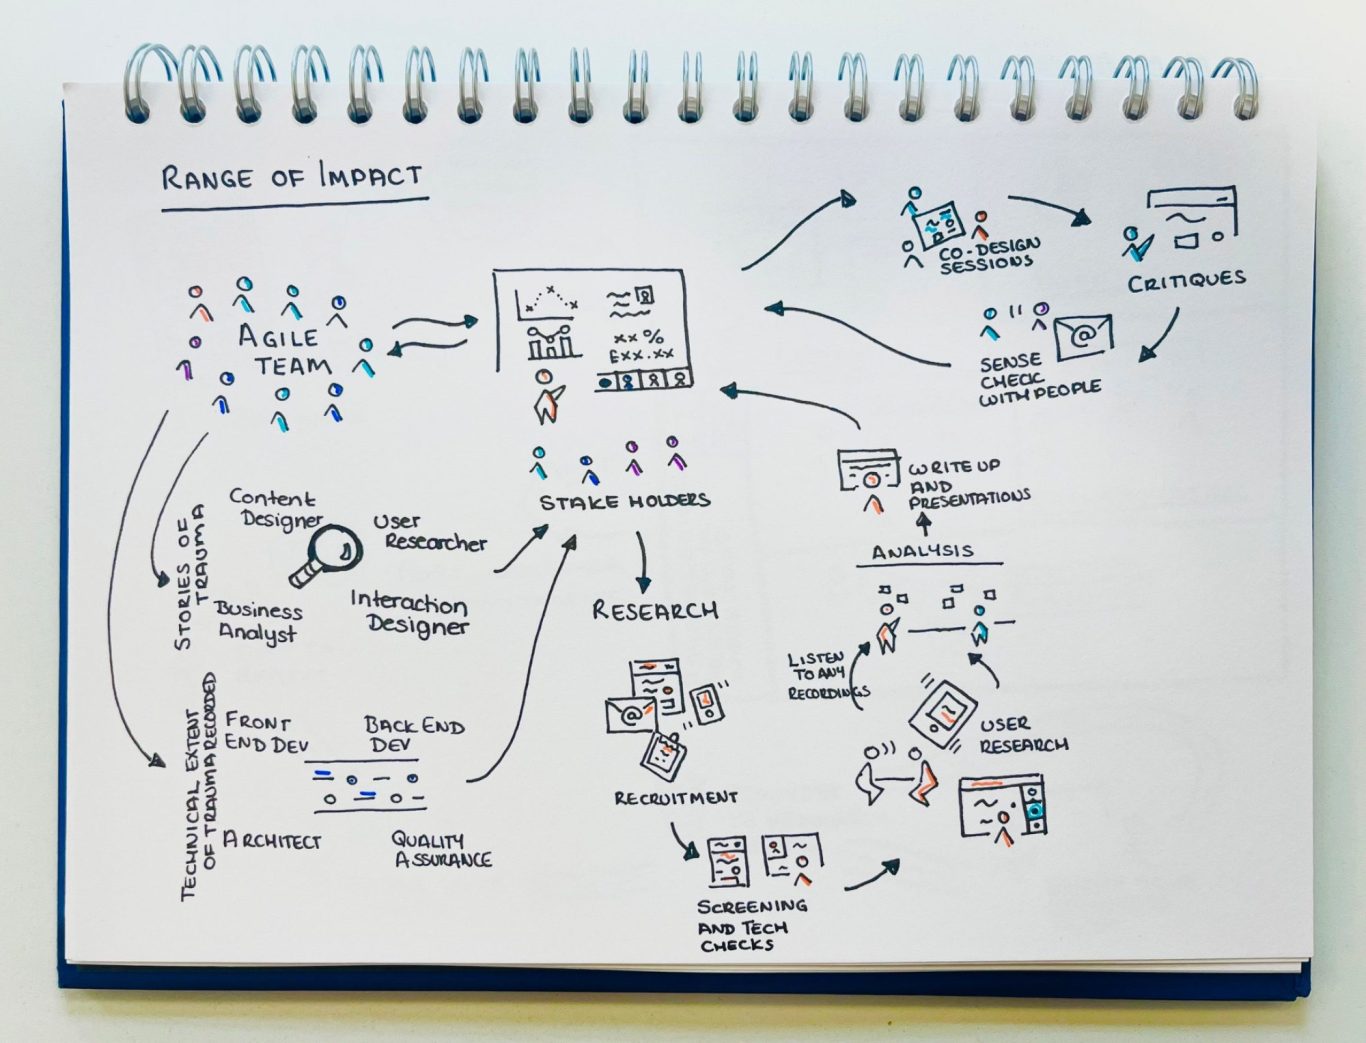 RANGE OF IMPACT
AGILE
TEAM
xx %
£xx.xx
STAKE HOLDERS
CO-DESIGN
SESSIONS
CRITIQUES
@
SENSE
CHECK
WITH PEOPLE
STORIES OF
TRAUMA
Content
Designer
User
Researcher
Business
Analyst
Interaction
Designer
TECHNICAL EXTENT
OF TRAUMA RECORDED
FRONT
END DEV
BACK END
DEV
ARCHITECT
QUALITY
ASSURANCE
RESEARCH
@
RECRUITMENT
SCREENING
AND TECH
CHECKS
USER
RESEARCH
LISTEN
TO ANY
RECORDINGS
ANALYSIS
WRITE UP
AND
PRESENTATIONS